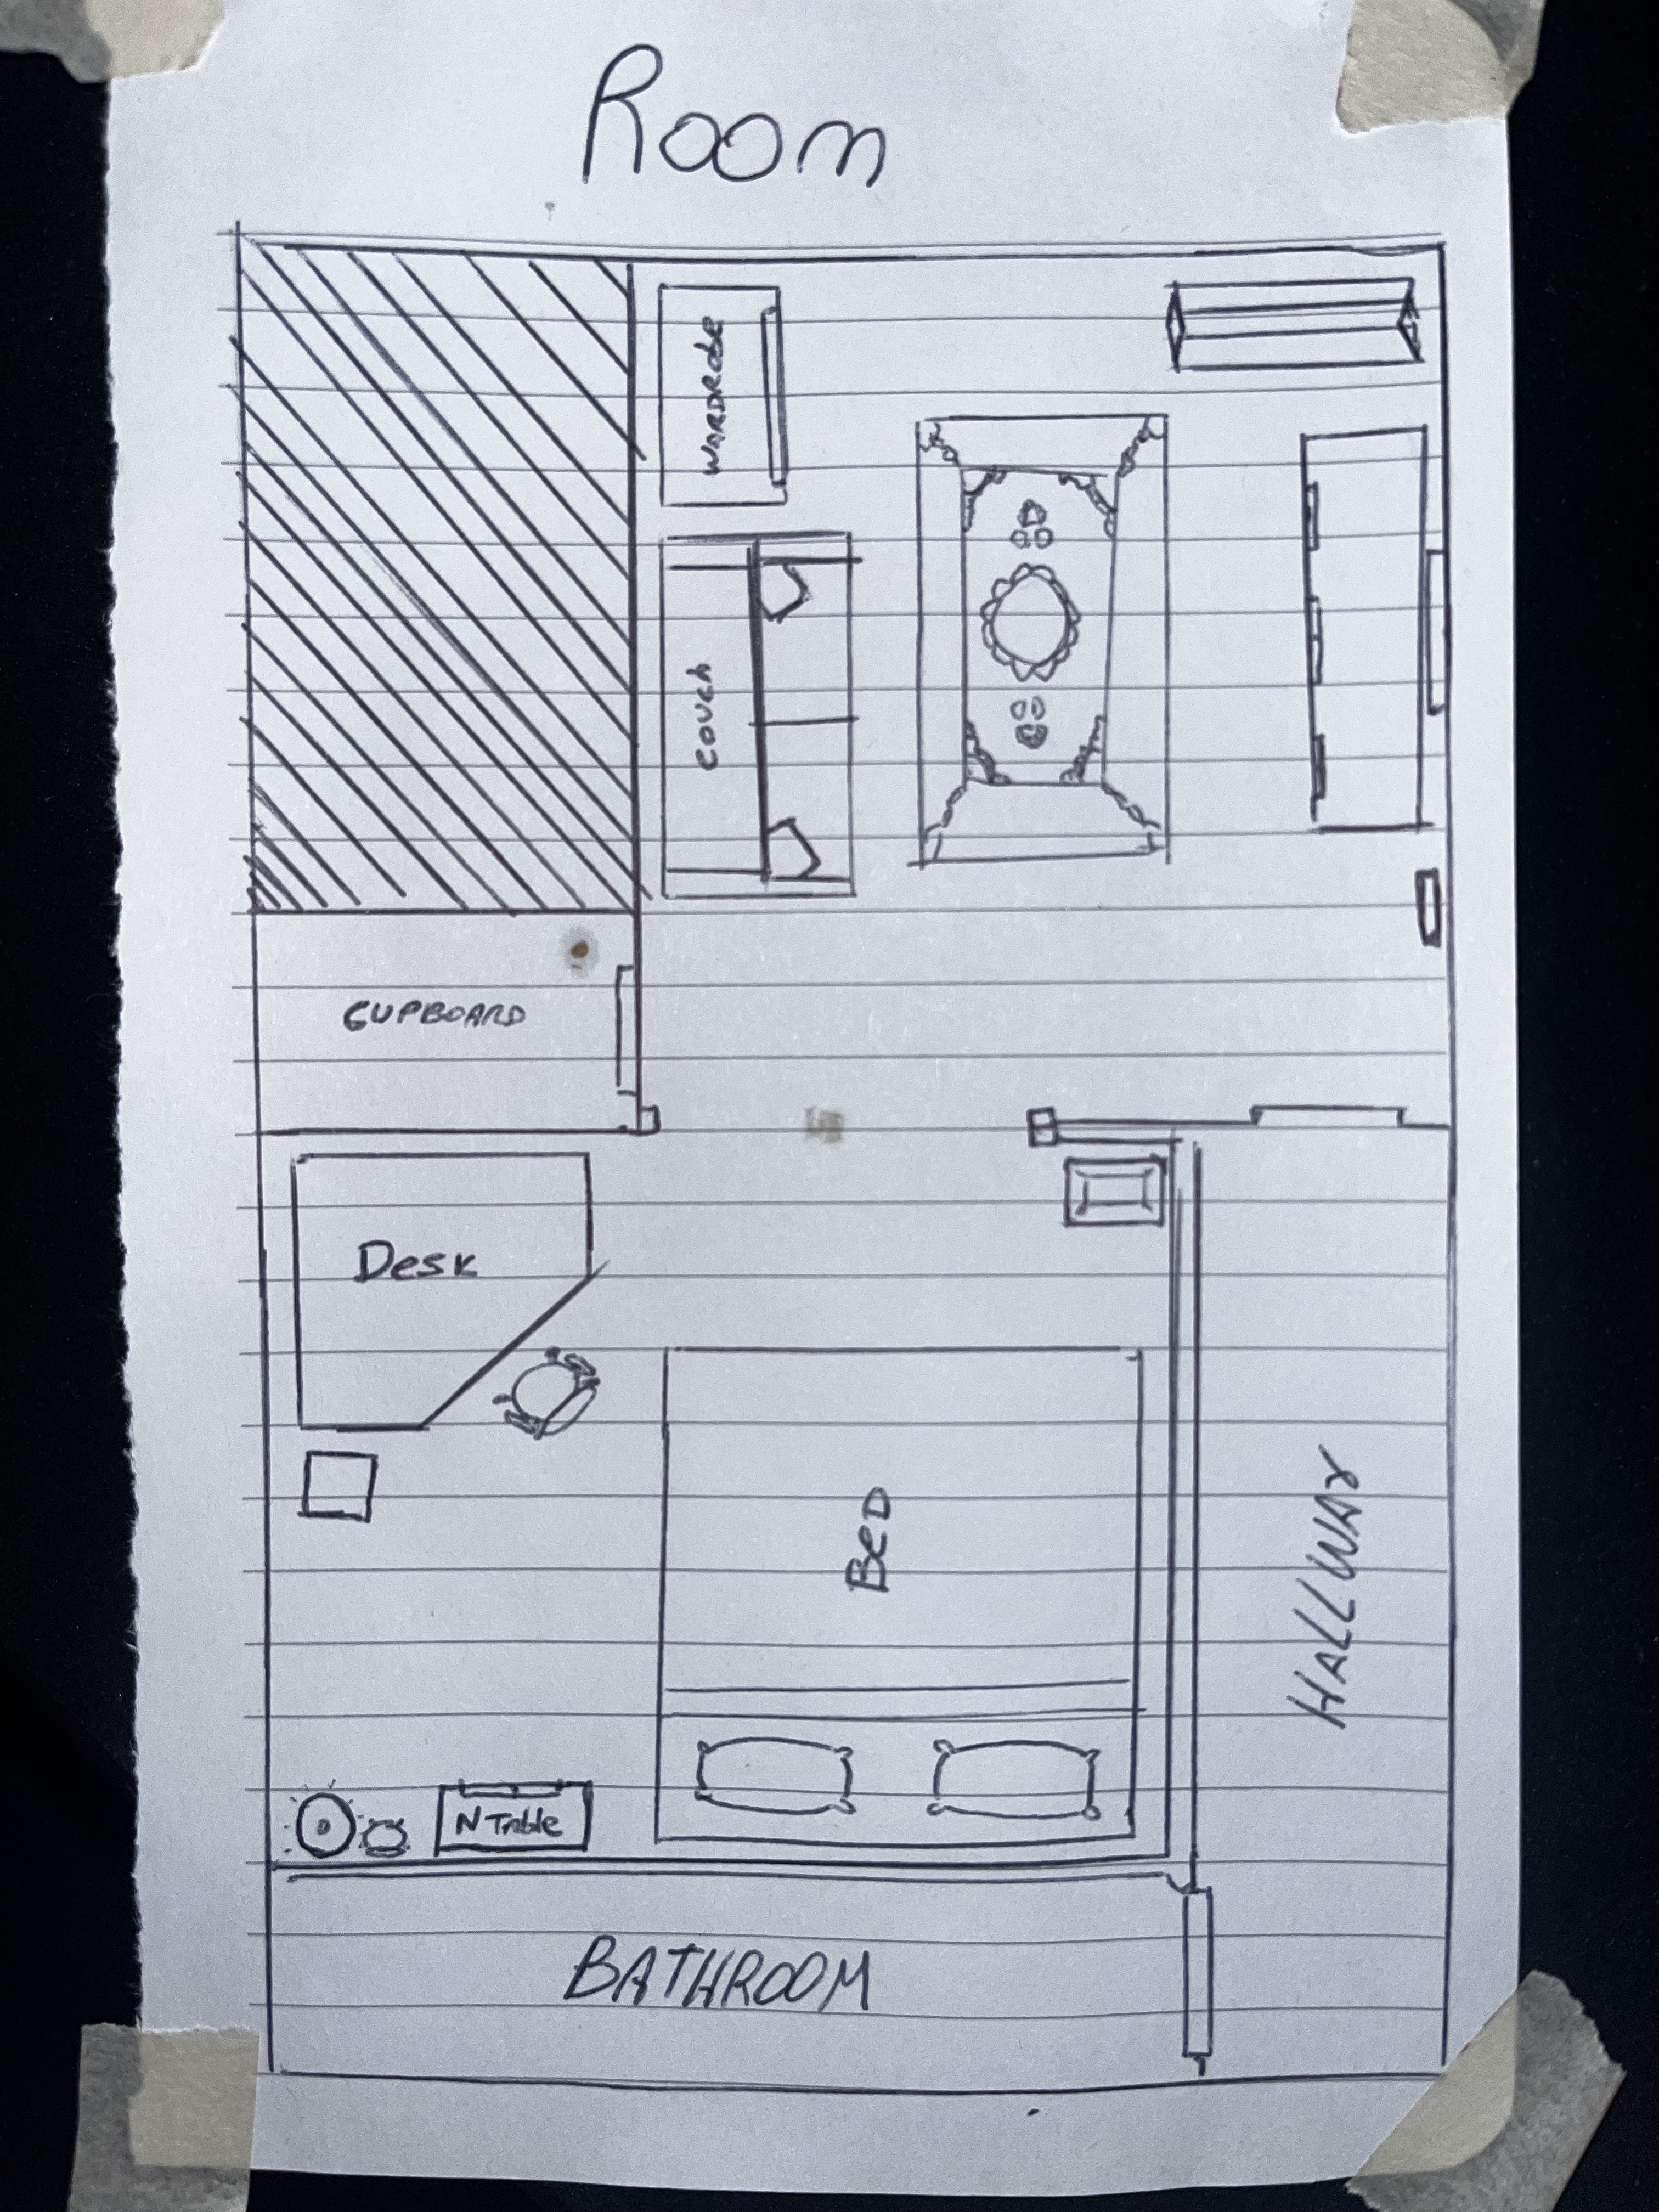 Room
WARDRobe
COUCH
CUPBOARD
Desk
BED
HALLWAY
N Table
BATHROOM